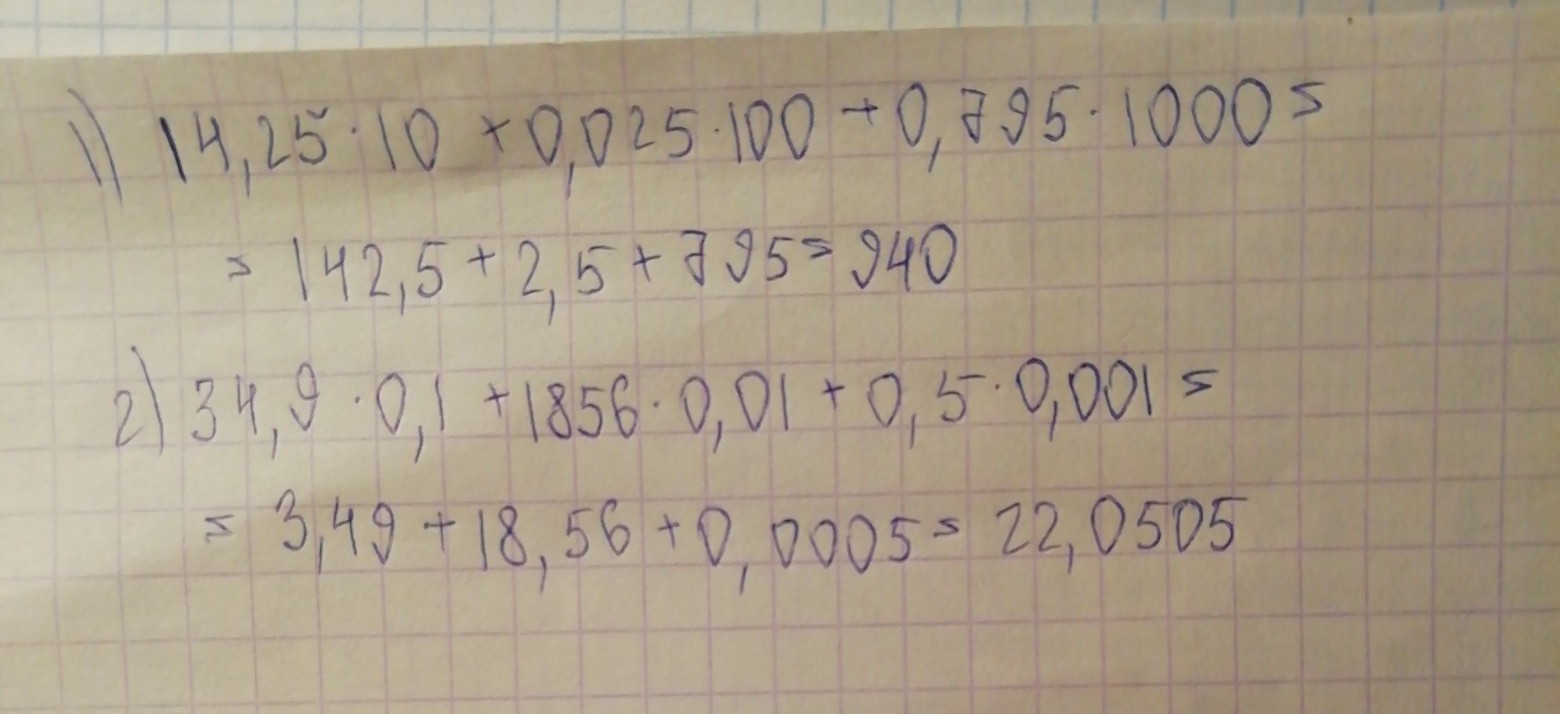 1) 14,25·10 + 0,025·100 + 0,795·1000 =
= 142,5 + 2,5 + 795 = 940
2) 34,9·0,1 + 1856·0,01 + 0,5·0,001 =
= 3,49 + 18,56 + 0,0005 = 22,0505